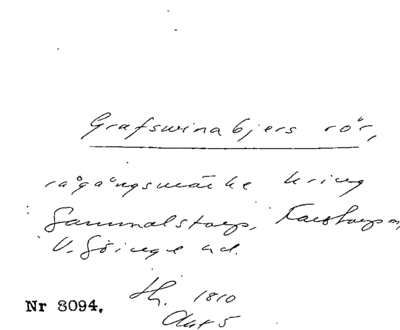 Grafswinabjers rör,
rågångsmärke kring
Gammalstorp,
V. Göinge hd.
Nr 8094.
Th. 1810
Akt 5